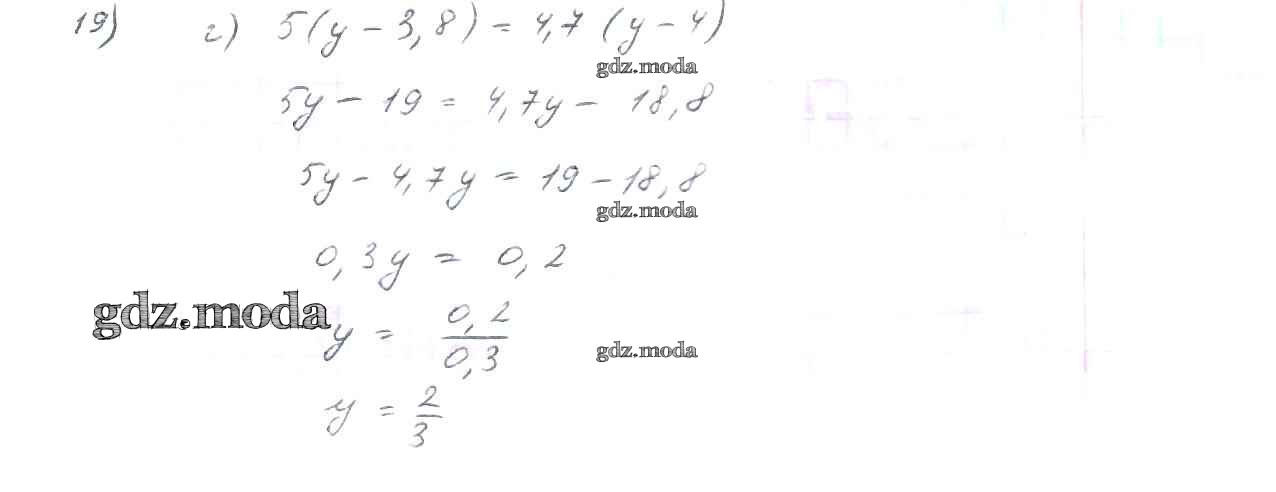 19) г) 5(y - 3,8) = 4,7 (y - 4)
gdz.moda
5y - 19 = 4,7y - 18,8
5y - 4,7y = 19 - 18,8
gdz.moda
0,3y = 0,2
gdz.moda
y = 0,2/0,3
gdz.moda
y = 2/3